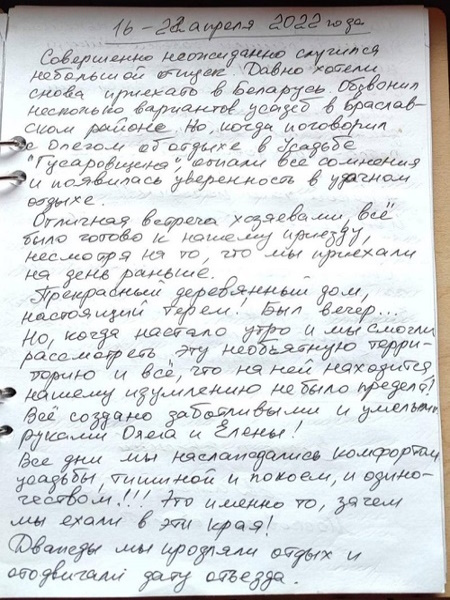 16-22 апреля 2022 года
Совершенно неожиданно случился
небольшой отпуск. Давно хотели
снова приехать в Беларусь. Обзвонил
несколько вариантов усадеб в Браслав-
ском районе. Но, когда поговорил
с Олегом об отдыхе в Усадьбе
"Гусаровщина", отпали все сомнения
и появилась уверенность в удачном
отдыхе.
Отличная встреча хозяевами, всё
было готово к нашему приезду,
несмотря на то, что мы приехали
на день раньше.
Прекрасный деревянный дом,
настоящий терем! Был вечер...
Но, когда настало утро и мы смогли
рассмотреть эту необъятную терри-
торию и всё, что на ней находится,
нашему изумлению не было предела!
Всё создано заботливыми и умелыми
руками Олега и Елены!
Все дни мы наслаждались комфортом
усадьбы, тишиной и покоем, и одино-
чеством!!! Это именно то, зачем
мы ехали в эти края!
Дважды мы продляли отдых и
отодвигали дату отъезда.